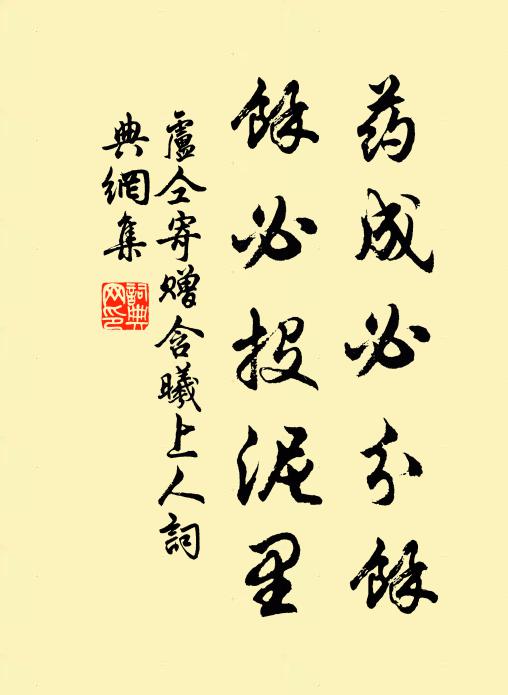 药成必分餘
餘必投泥里
盧仝寄赠含曦上人詞
典網集
詞典
网印